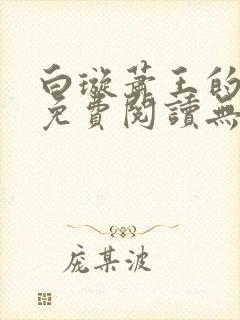 白璇萧王的
免費閱讀無
庞某波